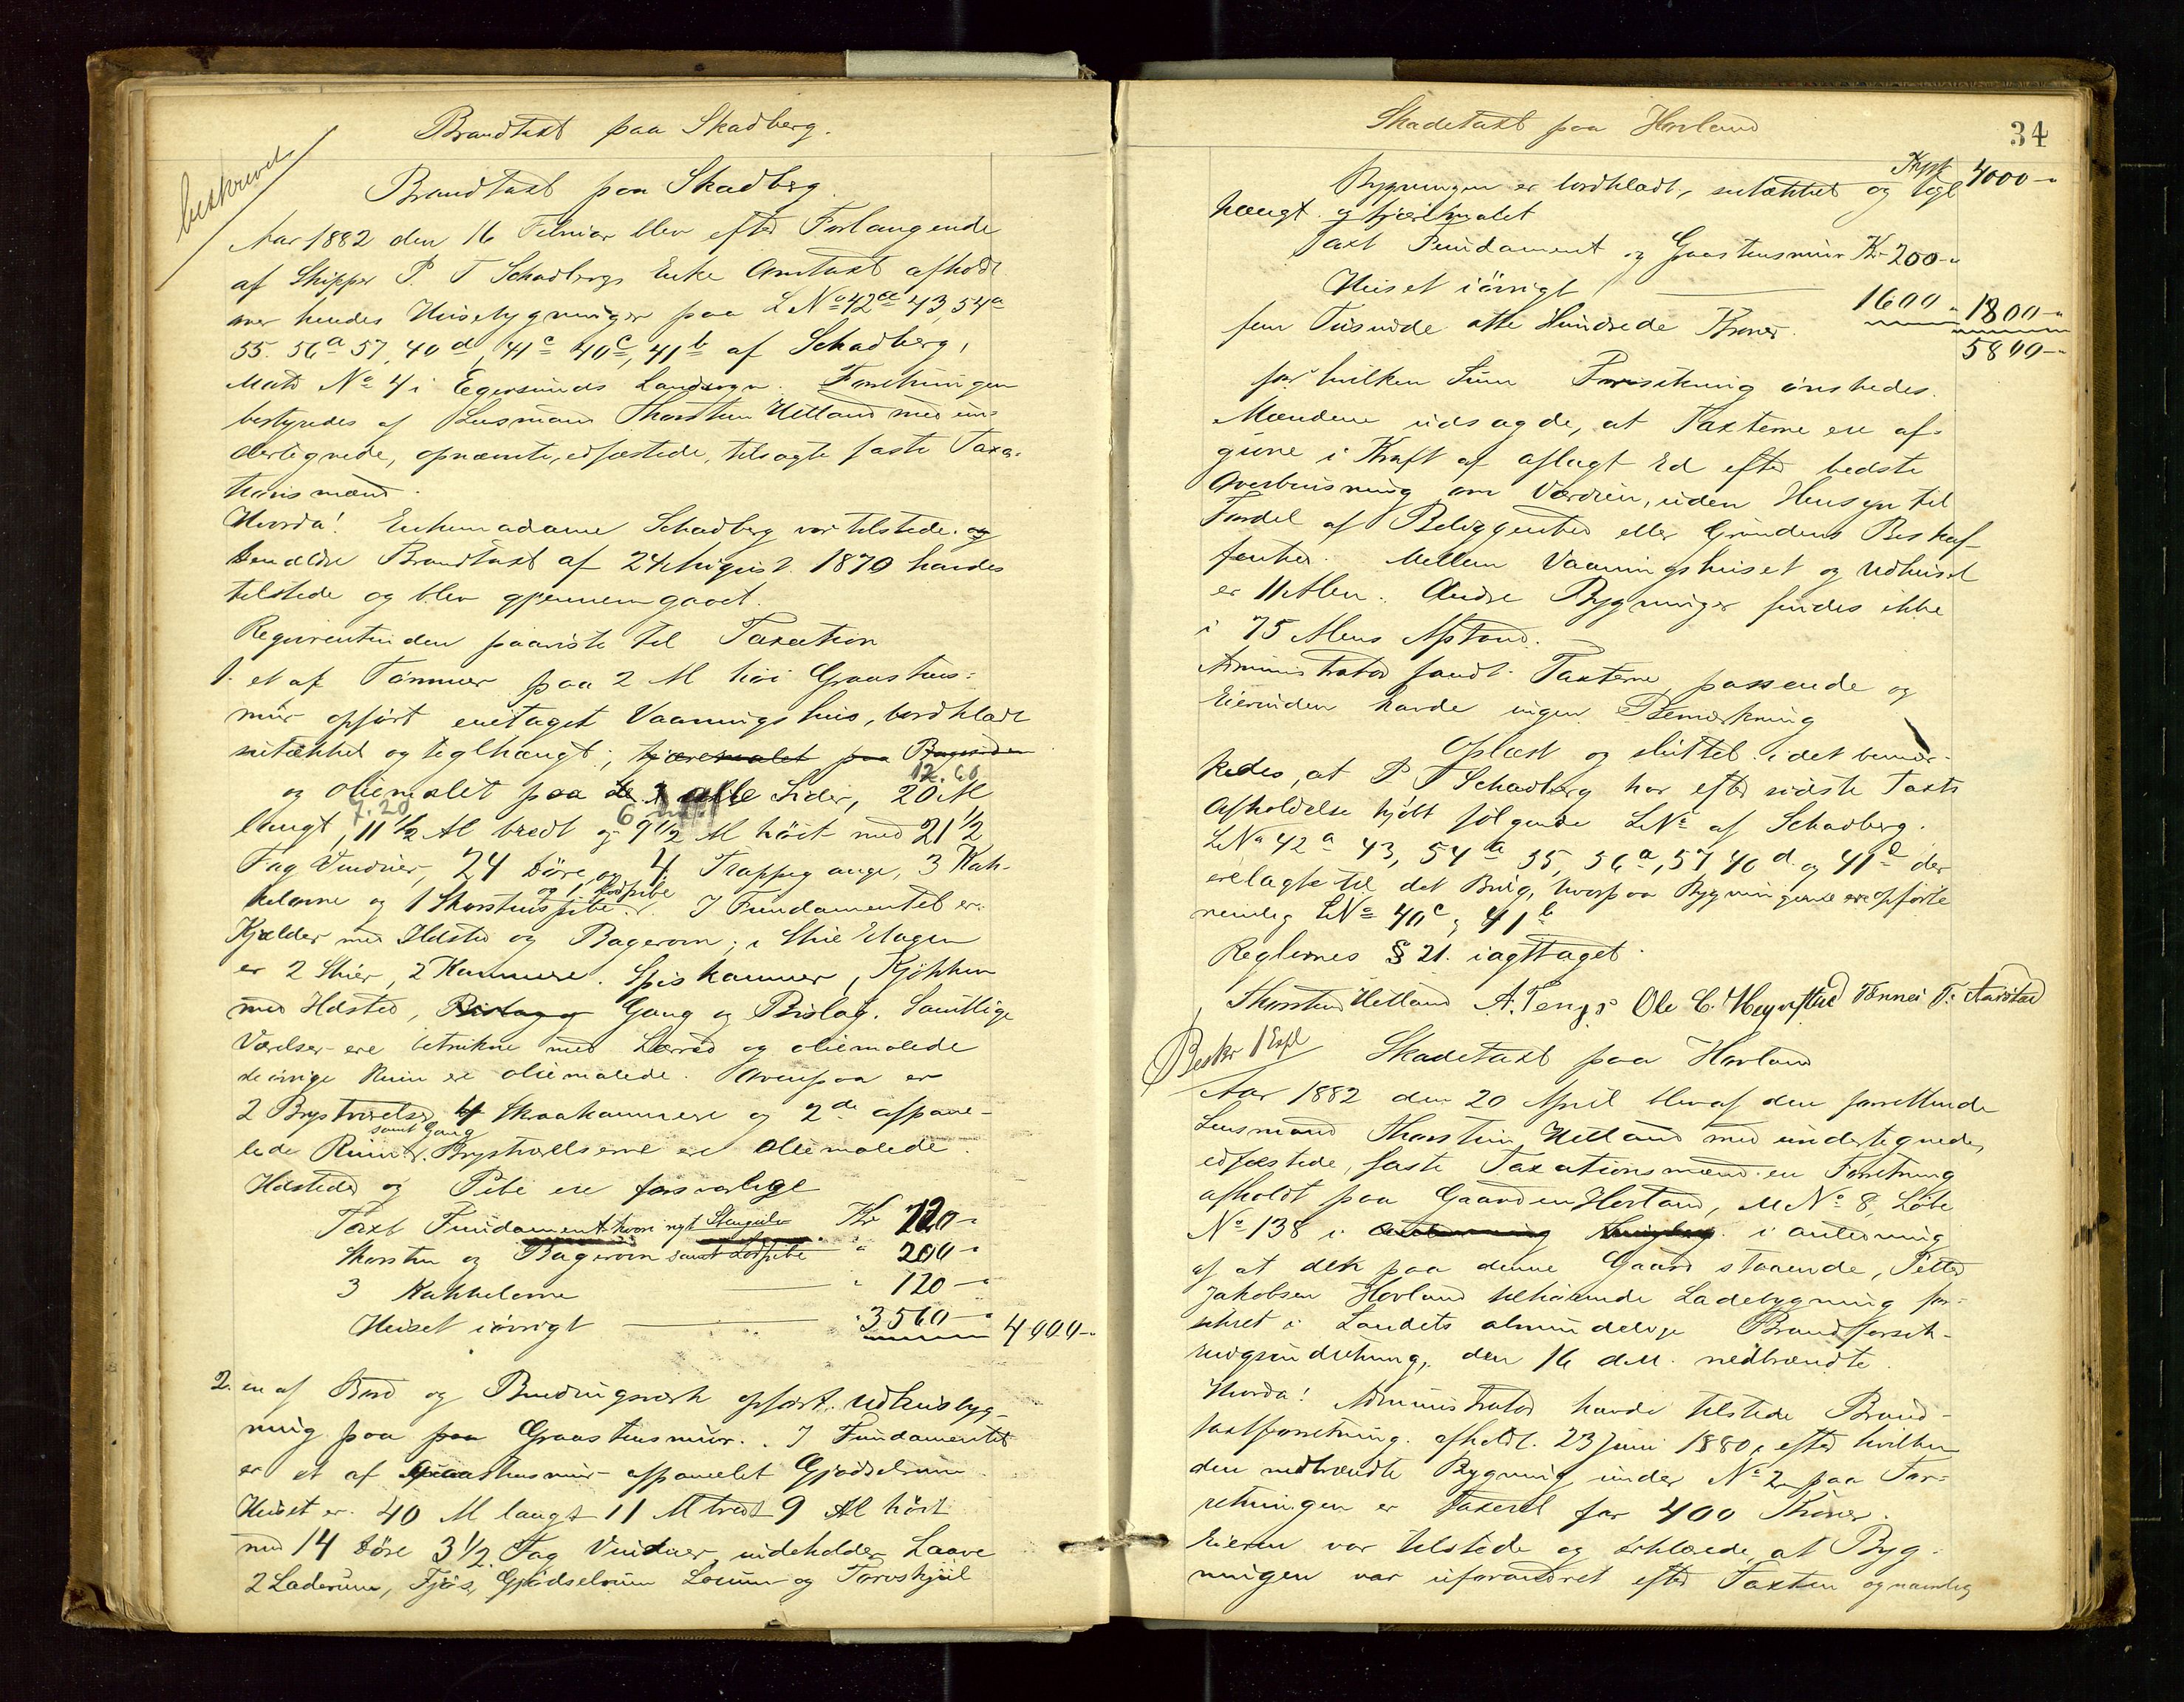 Brandtaxt paa Skadberg.
beskrevet
Brandtaxt paa Skadberg
Aar 1882 den 16 Februar blev efter Forlangende
af Skipper P. T Schadbergs Enke Omtaxt afholdt
over hendes Huusebygninger paa LNo 42a 43, 54a
55. 56a 57, 40d, 41c 40c, 41b af Schadberg,
Matr No 4 i Egersunds Landsogn. Forretningen
bestyredes af Lensmand Thorsten Hetland med un-
dertegnede, opnævnte, edfæstede, tilsagte faste Taxa-
tionsmænd.
Hvorda! Enkemadame Schadberg var tilstede. og
den ældre Brandtaxt af 24 August 1870 havdes
tilstede og blev gjennemgaaet.
Requirentinden paaviste til Taxation
1. et af Tømmer paa 2 Al høi Graastens-
mur opført enetaget Vaaningshuus, bordklædt
netækket og teglhængt, tjæremalet paa Bagsiden
12.60
og oliemalet paa de 3 alle Sider, 20 Al
7.20 6
langt, 11 1/2 Al bredt og 9 1/2 Al høit med 21 1/2
Fag Vinduer, 24 Døre og 4 Trappegange, 3 Kak-
og 1 Lodpibe
kelovne og 1 Skorstenspibe. I Fundamentet er
Kjælder med Ildsted og Bagerovn; i 1ste Etagen
er 2 Stuer, 2 Kammere. Spiskammer, Kjøkken
med Ildsted, Bislag og Gang og Bislag. Samtlige
Værelser ere betrukne med Lærred og oliemalede
de øvrige Rum ere oliemalede. Ovenpaa er
2 Brystværelser, 4 Skraakammere og 2de afpane-
samt Gang
lede Rum. Brystværelserne ere Oliemalede.
Ildsteder og Pibe ere forsvarlige
Taxt Fundament hvori nyt Kr 120-"
Skorsten og Bagerovn samt Lodpibe " 200-"
3 Kakkelovne " 120-"
Huset iøvrigt " 3560-" 4000-"
2. en af Bord og Bindingsværk opført Udhusbyg-
ning paa paa Graastensmur. I Fundamentet
er et af Graastensmur afpanelet Gjødselrum
Huset er 40 Al langt 11 Al bredt 9 Al høit
med 14 Døre 3 1/2 Fag Vinduer, indeholder Laave
2 Laderum, Fjøs, Gjødselrum Locum og Torvskjul
Skadetaxt paa Hovland
34
Trpt 4000-"
Bygningen er bordklædt, netækket og tegl
hængt og tjæremalet
Taxt Fundament og Graastensmur Kr 200-"
Huset iøvrigt 1600" 1800-"
fem Tusinde otte Hundrede Kroner. 5800-"
for hvilken Sum Forsikring ønskedes.
Mændene udsagde, at Taxterne ere af-
givne i Kraft af aflagt Ed efter bedste
Overbevisning om Værdien, uden Hensyn til
Fordel af Beliggenhed eller Grundens Beskaf-
fenhed. Mellem Vaaningshuset og Udhuset
er 11 Alen. Andre Bygninger findes ikke
i 75 Alens Afstand.
Administrator fandt Taxterne passende og
Eierinden havde ingen Bemærkning
Oplæst og sluttet idet bemær-
kedes, at P T Schadberg har efter sidste Taxts
Afholdelse kjøbt følgende LNo af Schadberg.
LNo 42a 43, 54a 55, 56a, 57, 40d og 41c der
ere lagte til det Brug, hvorpaa Bygningerne ere opførte
nemlig LNo 40c, 41b
Reglernes § 21. iagttaget.
Thorsten Hetland A. Tengs Ole C. Tønnes T. Aarstad
Beskr 1 Expl
Skadetaxt paa Hovland
Aar 1882 den 20 April blev af den forrettende
Lensmand Thorsten Hetland med undertegnede,
edfæstede, faste Taxationsmænd en Forretning
afholdt paa Gaarden Hovland, MNo 8, Løbe
No 138 i i anledning
af at den paa denne Gaard staaende, Petter
Jakobsen Hovland tilhørende Ladebygning for-
sikret i Landets almindelige Brandforsik-
ringsindretning, den 16 d.M. nedbrændte.
Hvorda! Administrator havde tilstede Brand-
taxtforretning afholdt 23 Juni 1880, efter hvilken
den nedbrændte Bygning under No 2 paa For-
retningen er taxeret for 400 Kroner.
Eieren var tilstede og erklærede, at Byg-
ningen var uforandret efter Taxten og nemlig